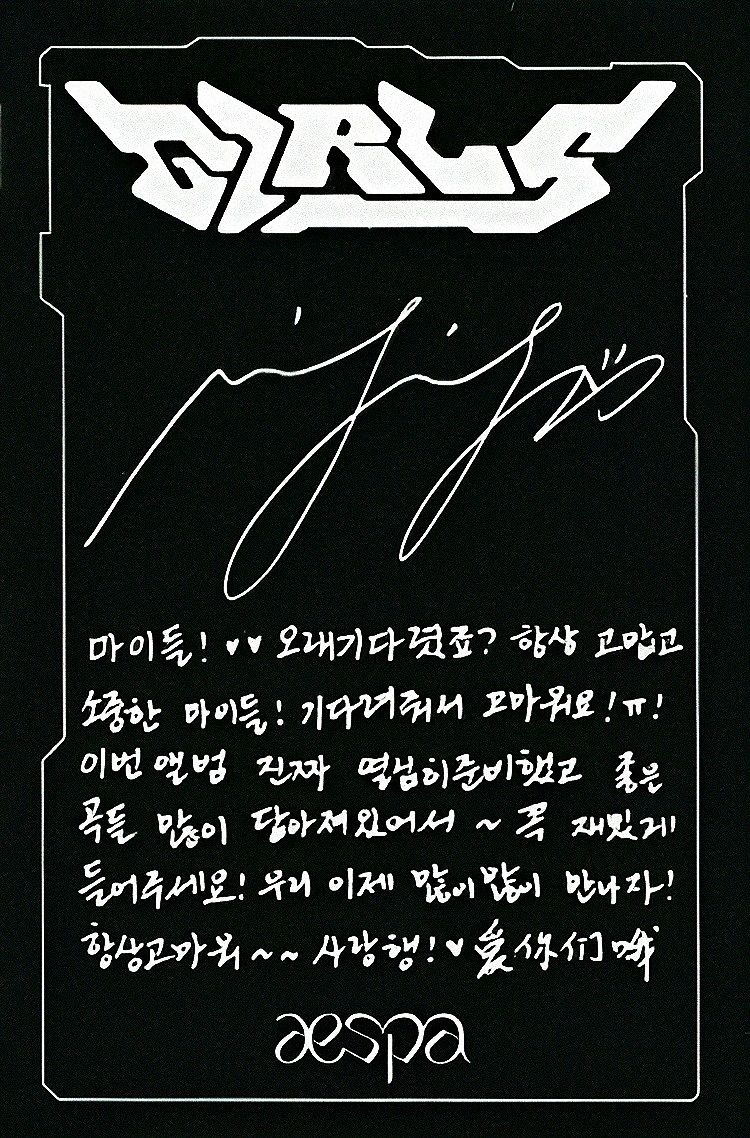 GIRLS
마이들! ♥♥ 오래기다렸죠? 항상 고맙고
소중한 마이들! 기다려줘서 고마워요! ㅠ!
이번 앨범 진짜 열심히준비했고 좋은
곡들 많이 담아져있어서 ~ 꼭 재밌게
들어주세요! 우리 이제 많이많이 만나자!
항상고마워~~ 사랑행! ♥ 爱你们哦
aespa